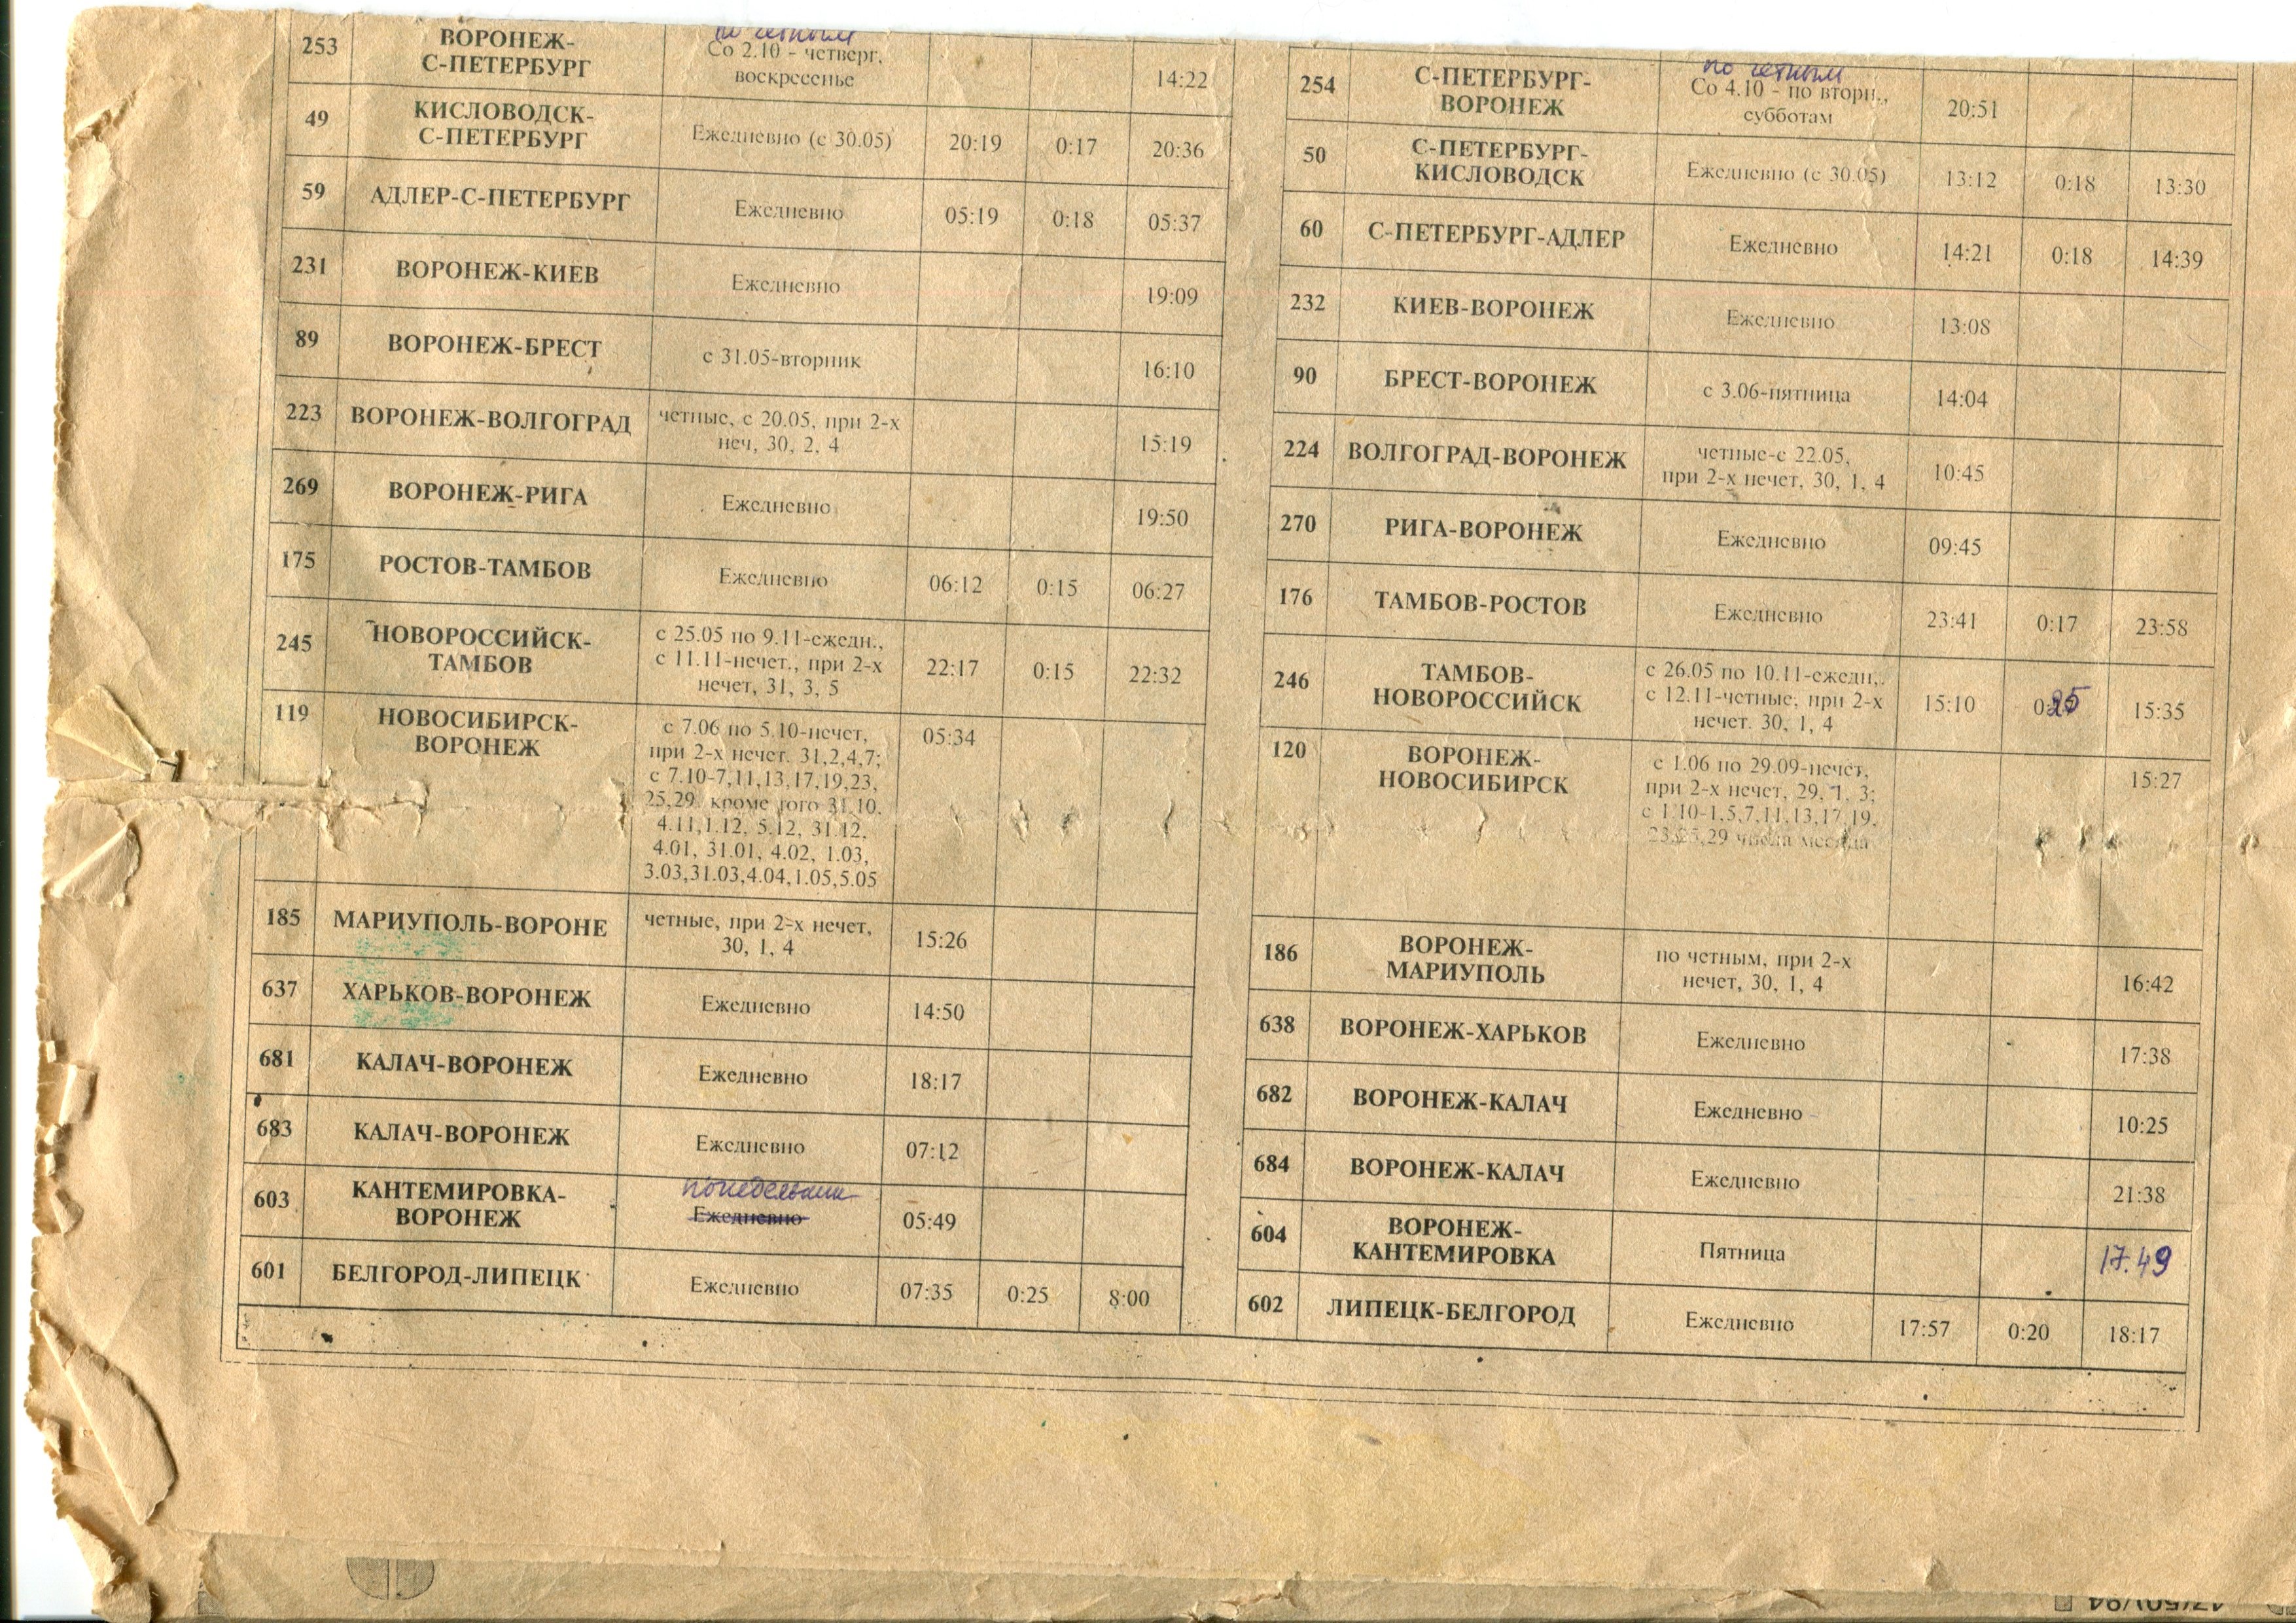 253
ВОРОНЕЖ-
С-ПЕТЕРБУРГ
по четным
Со 2.10 - четверг,
воскресенье
14:22
49
КИСЛОВОДСК-
С-ПЕТЕРБУРГ
Ежедневно (с 30.05)
20:19
0:17
20:36
59
АДЛЕР-С-ПЕТЕРБУРГ
Ежедневно
05:19
0:18
05:37
231
ВОРОНЕЖ-КИЕВ
Ежедневно
19:09
89
ВОРОНЕЖ-БРЕСТ
с 31.05-вторник
16:10
223
ВОРОНЕЖ-ВОЛГОГРАД
четные, с 20.05, при 2-х
неч, 30, 2, 4
15:19
269
ВОРОНЕЖ-РИГА
Ежедневно
19:50
175
РОСТОВ-ТАМБОВ
Ежедневно
06:12
0:15
06:27
245
НОВОРОССИЙСК-
ТАМБОВ
с 25.05 по 9.11-ежедн.,
с 11.11-нечет., при 2-х
нечет, 31, 3, 5
22:17
0:15
22:32
119
НОВОСИБИРСК-
ВОРОНЕЖ
с 7.06 по 5.10-нечет,
при 2-х нечет. 31,2,4,7;
с 7.10-7,11,13,17,19,23,
25,29. кроме того 31.10,
4.11,1.12, 5.12, 31.12,
4.01, 31.01, 4.02, 1.03,
3.03,31.03,4.04,1.05,5.05
05:34
185
МАРИУПОЛЬ-ВОРОНЕ
четные, при 2-х нечет,
30, 1, 4
15:26
637
ХАРЬКОВ-ВОРОНЕЖ
Ежедневно
14:50
681
КАЛАЧ-ВОРОНЕЖ
Ежедневно
18:17
683
КАЛАЧ-ВОРОНЕЖ
Ежедневно
07:12
603
КАНТЕМИРОВКА-
ВОРОНЕЖ
понедельник
Ежедневно
05:49
601
БЕЛГОРОД-ЛИПЕЦК
Ежедневно
07:35
0:25
8:00
254
С-ПЕТЕРБУРГ-
ВОРОНЕЖ
по четным
Со 4.10 - по вторн.,
субботам
20:51
50
С-ПЕТЕРБУРГ-
КИСЛОВОДСК
Ежедневно (с 30.05)
13:12
0:18
13:30
60
С-ПЕТЕРБУРГ-АДЛЕР
Ежедневно
14:21
0:18
14:39
232
КИЕВ-ВОРОНЕЖ
Ежедневно
13:08
90
БРЕСТ-ВОРОНЕЖ
с 3.06-пятница
14:04
224
ВОЛГОГРАД-ВОРОНЕЖ
четные-с 22.05,
при 2-х нечет, 30, 1, 4
10:45
270
РИГА-ВОРОНЕЖ
Ежедневно
09:45
176
ТАМБОВ-РОСТОВ
Ежедневно
23:41
0:17
23:58
246
ТАМБОВ-
НОВОРОССИЙСК
с 26.05 по 10.11-ежедн,.
с 12.11-четные, при 2-х
нечет. 30, 1, 4
15:10
0:25
15:35
120
ВОРОНЕЖ-
НОВОСИБИРСК
с 1.06 по 29.09-нечет,
при 2-х нечет, 29, 1, 3;
с 1.10-1,5,7,11,13,17,19,
23,25,29 числа месяца
15:27
186
ВОРОНЕЖ-
МАРИУПОЛЬ
по четным, при 2-х
нечет, 30, 1, 4
16:42
638
ВОРОНЕЖ-ХАРЬКОВ
Ежедневно
17:38
682
ВОРОНЕЖ-КАЛАЧ
Ежедневно
10:25
684
ВОРОНЕЖ-КАЛАЧ
Ежедневно
21:38
604
ВОРОНЕЖ-
КАНТЕМИРОВКА
Пятница
17.49
602
ЛИПЕЦК-БЕЛГОРОД
Ежедневно
17:57
0:20
18:17